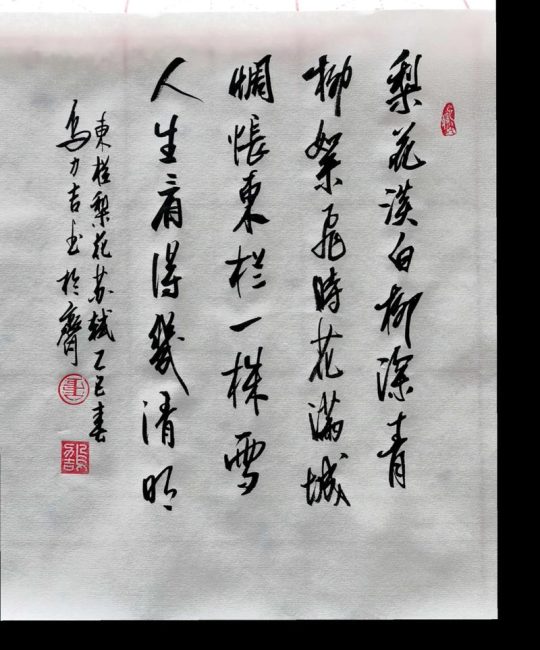 梨花淡白柳深青
柳絮飛時花滿城
惆悵東栏一株雪
人生看得幾清明
東栏梨花苏轼乙巳春
乌力吉书於齋